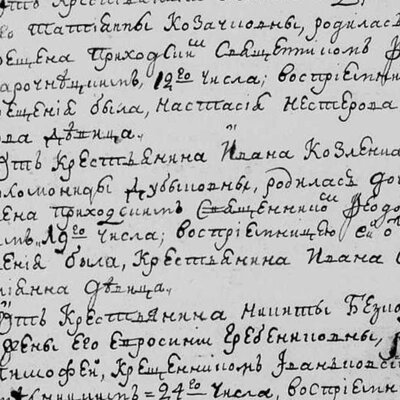 Отъ Крестьянина
его Татіанны Козачковны, родилась
рещена Приходскимъ Священникомъ
12го числа; воспріемни
рещенія была, Настасія Нестерова
ова дѣвица.
Отъ Крестьянина Ивана Козленка
оломониды Дубыновны, родилась доч
ена Приходскимъ Священникомъ Ѳеодо
имъ, 19го числа; воспріемницею ея о
щенія была, Крестьянина Ивана
дѣвица.
Отъ Крестьянина Никиты
жены его Евросиніи Гребенниковны,
Тимоѳей, Крещенникомъ
= 24го числа, воспріем